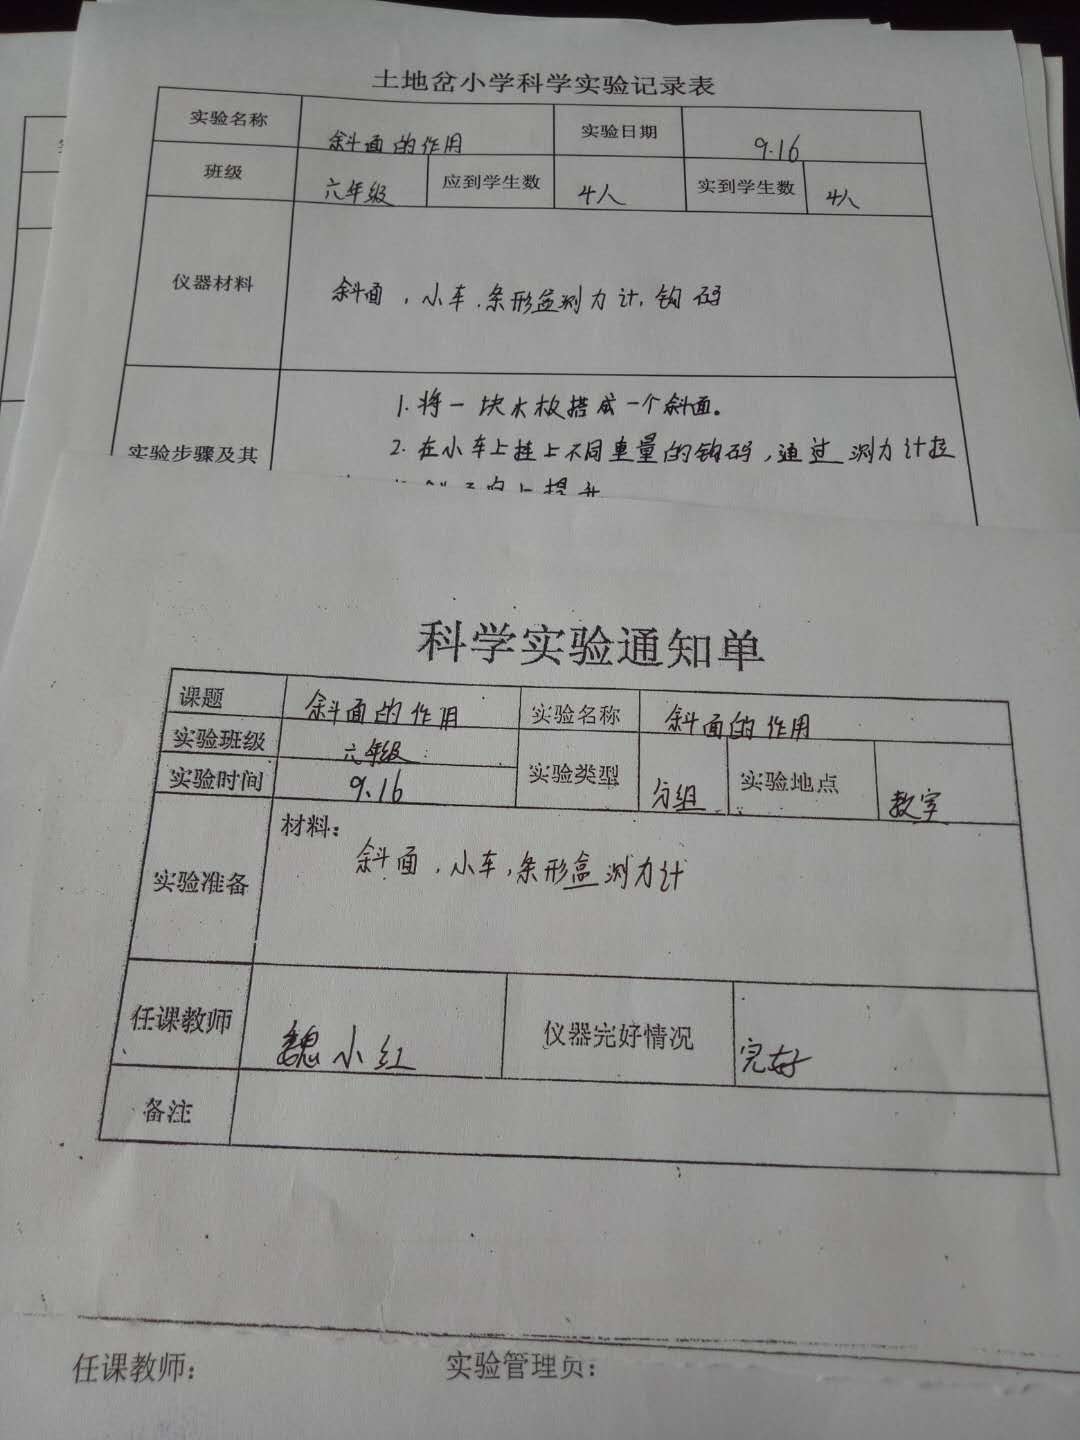 土地岔小学科学实验记录表
实验名称 斜面的作用 实验日期 9.16
班级 六年级 应到学生数 4人 实到学生数 4人
仪器材料 斜面，小车.条形盒测力计，钩码
1.将一块木板搭成一个斜面。
实验步骤及其
2.在小车上挂上不同重量的钩码，通过测力计拉
向上提升
科学实验通知单
课题 斜面的作用 实验名称 斜面的作用
实验班级 六年级
实验类型 分组 实验地点 教室
实验时间 9.16
材料：
实验准备 斜面，小车，条形盒测力计
任课教师 魏小红 仪器完好情况 完好
备注
任课教师： 实验管理员：